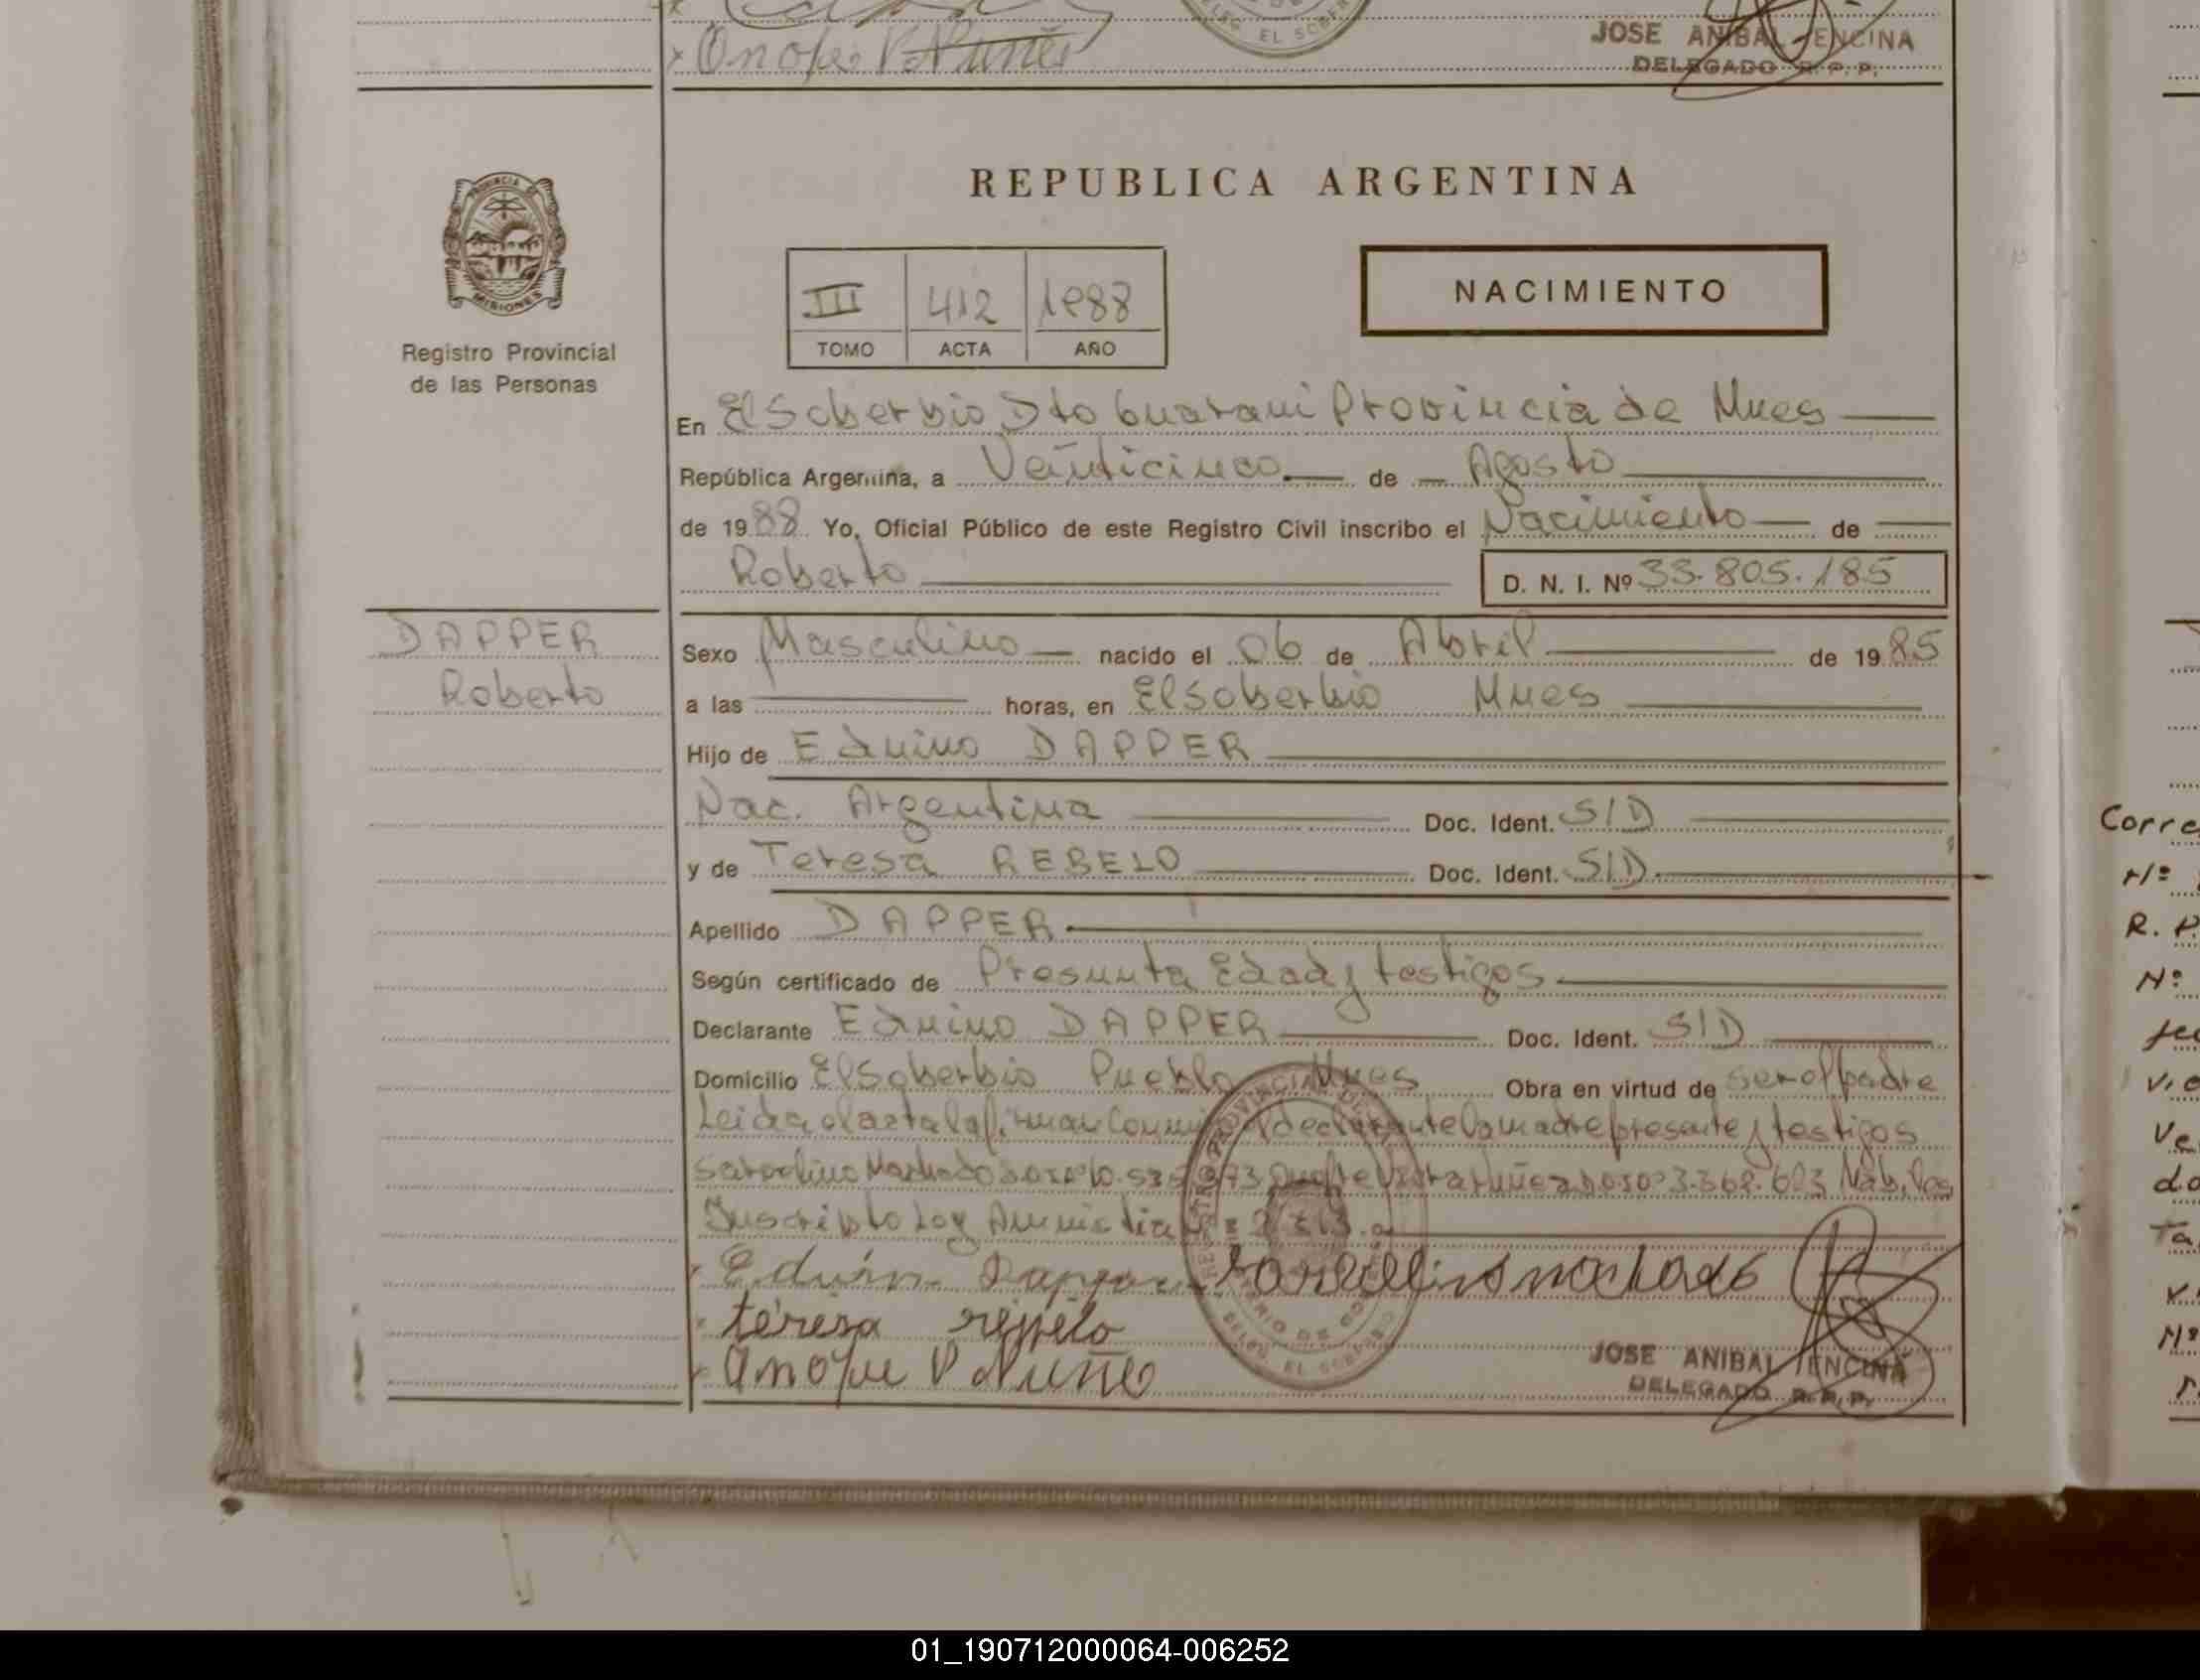 Onofre V Nuñes
EL SOBER
JOSE ANIBAL ENCINA
DELEGADO R. P. P.
REPUBLICA ARGENTINA
PROVINCIA DE
MISIONES
Registro Provincial
de las Personas
III 412 1988
TOMO ACTA AÑO
NACIMIENTO
En El Soberbio Dto Guarani Provincia de Mnes
República Argentina, a Veinticinco de Agosto
de 1988 Yo, Oficial Público de este Registro Civil inscribo el Nacimiento de
Roberto D. N. I. Nº 33.805.185
DAPPER
Roberto
Sexo Masculino nacido el 06 de Abril de 1985
a las horas, en El Soberbio Mnes
Hijo de Eduino DAPPER
Nac. Argentina Doc. Ident. S/D
y de Teresa REBELO Doc. Ident. S/D
Apellido DAPPER
Según certificado de Presunta Edad y testigos
Declarante Eduino DAPPER Doc. Ident. S/D
Domicilio El Soberbio Pueblo Mnes Obra en virtud de ser el padre
Leida el acta la firman Conmi declarante la madre presente y testigos
Machado Nuñez 3.368.623
Inscripto Ley Amnistia
Eduin Dapper machado
teresa
Onofre V Nuñe
JOSE ANIBAL ENCINA
DELEGADO R. P. P.
Corre
Nº
R. P.
Nº
01_190712000064-006252